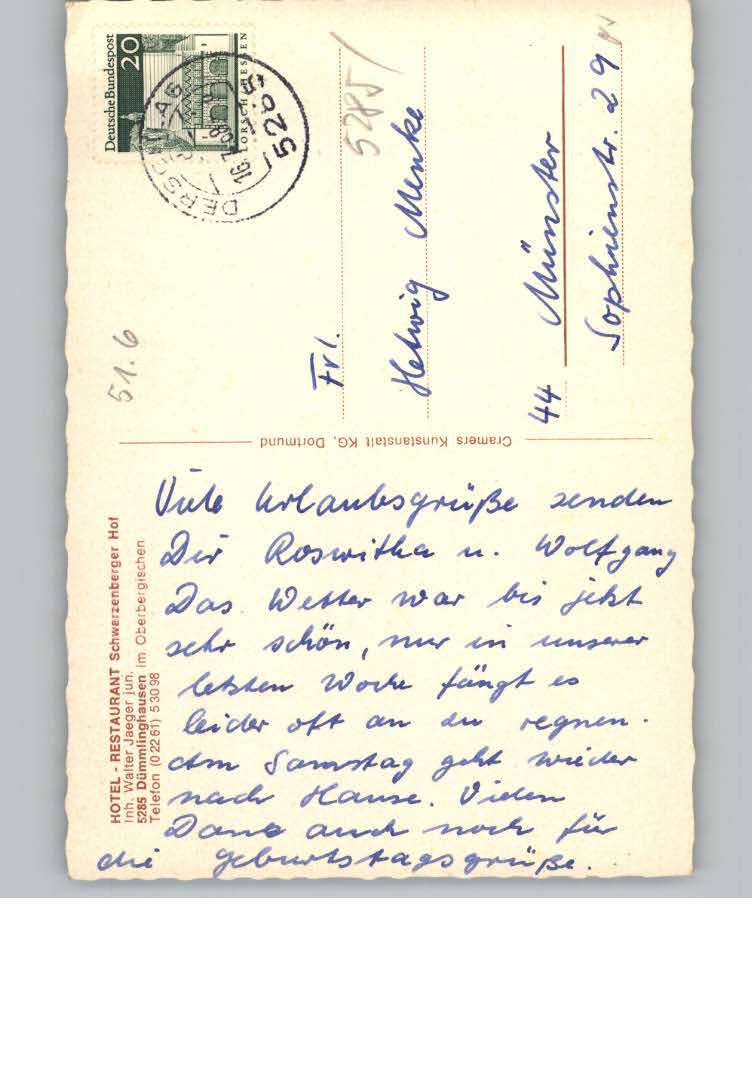 HOTEL - RESTAURANT Schwarzenberger Hof
Inh. Walter Jaeger jun.
5285 Dümmlinghausen im Oberbergischen
Telefon (0 22 61) 5 30 98
Viele Urlaubsgrüße senden
Dir Roswitha u. Wolfgang
Das Wetter war bis jetzt
sehr schön, nur in unserer
letzten Woche fängt es
leider oft an zu regnen.
Am Samstag geht wieder
nach Hause. Vielen
Dank auch noch für
die Geburtstagsgrüße.
Cramers Kunstanstalt KG, Dortmund
51.6
Deutsche Bundespost
20
LORSCH HESSEN
DERSCHLAG
5285/
Frl.
Hetwig Menke
44 Münster
Sophienstr. 29